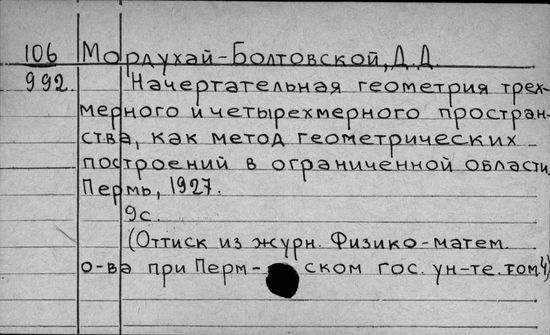 106 Мордухай-Болтовской, Д.Д.
992. Начертательная геометрия трех-
мерного и четырехмерного простран-
ства, как метод геометрических
построений в ограниченной области
Пермь, 1927.
9с.
(Оттиск из журн. Физико-матем.
о-ва при Перм- ском гос. ун-те. том 4)